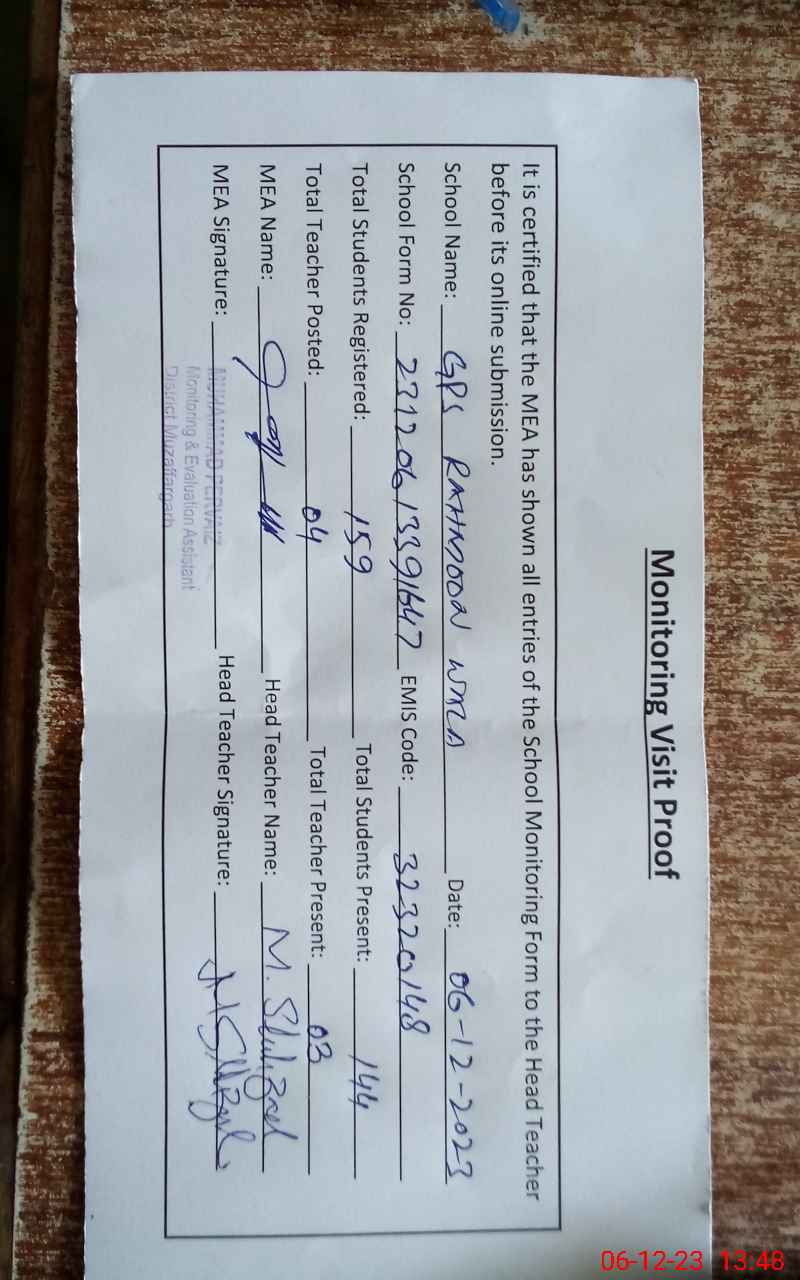 Monitoring Visit Proof
It is certified that the MEA has shown all entries of the School Monitoring Form to the Head Teacher
before its online submission.
School Name: GPS RAHMOON WALA Date: 06-12-2023
School Form No: 23120613391647 EMIS Code: 32320148
Total Students Registered: 159 Total Students Present: 144
Total Teacher Posted: 04 Total Teacher Present: 03
MEA Name: Head Teacher Name: M.
MEA Signature: Head Teacher Signature:
MUHAMMAD PERVAIZ
Monitoring & Evaluation Assistant
District Muzaffargarh
06-12-23 13:48